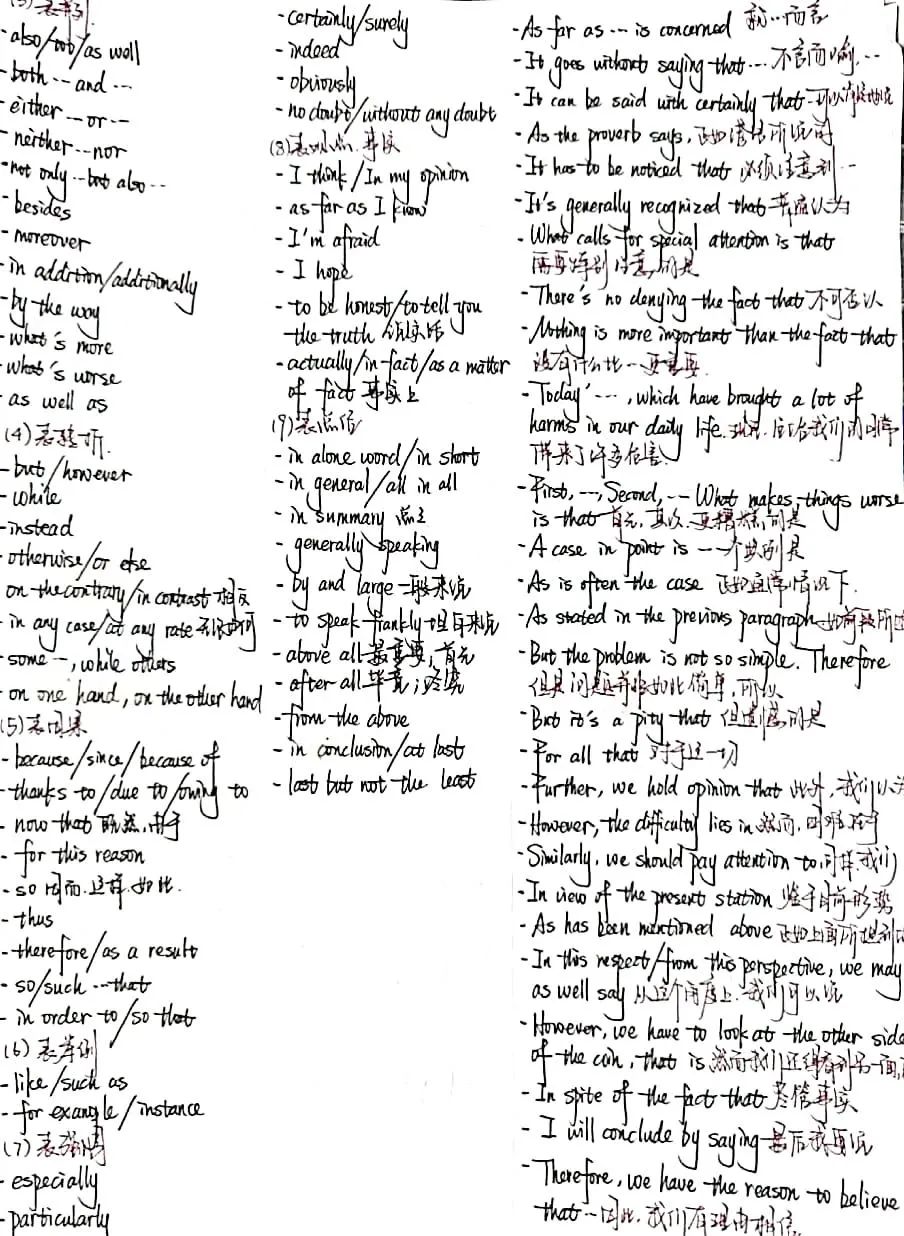 (3) 表并列
- also/too/as well
- both … and …
- either … or …
- neither … nor
- not only … but also …
- besides
- moreover
- in addition/additionally
- by the way
- what's more
- what's worse
- as well as
(4) 表转折
- but/however
- while
- instead
- otherwise/or else
on the contrary/in contrast 相反
- in any case/at any rate 无论如何
- some …, while others
- on one hand, on the other hand
(5) 表因果
- because/since/because of
- thanks to/due to/owing to
- now that 既然,由于
- for this reason
- so 因而.这样.如此.
- thus
- therefore/as a result
- so/such … that
- in order to/so that
(6) 表举例
- like/such as
- for exangle/instance
(7) 表强调
- especially
- particularly
- certainly/surely
- indeed
- obviously
- no doubt/without any doubt
(8) 表观点.事实
- I think/In my opinion
- as far as I know
- I'm afraid
- I hope
- to be honest/to tell you
the truth 说实话
- actually/in fact/as a matter
of fact 事实上
(9) 表总结
- in alone word/in short
- in general/all in all
- in summary 总之
- generally speaking
- by and large 一般来说
- to speak frankly 坦白来说
- above all 最重要,首先
- after all 毕竟;终究
- from the above
- in conclusion/at last
- last but not the least
- As far as … is concerned 就…而言
- It goes without saying that … 不言而喻,…
- It can be said with certainly that … 可以肯定地说
- As the proverb says, 正如谚语所说的
- It has to be noticed that 必须注意到…
- It's generally recognized that 普遍认为
- What calls for special attention is that
需要特别注意的是
- There's no denying the fact that 不可否认
- Nothing is more important than the fact that
没有什么比…更重要.
- Today …, which have brought a lot of
harms in our daily life. 现在,它们给我们的日常
带来了许多危害.
- First, …, Second, … What makes things worse
is that 首先,其次.更糟糕的是
- A case in point is … 一个典例是
- As is often the case 正如通常情况下
- As stated in the previous paragraph 如前段所述
- But the problem is not so simple. Therefore
但是问题并非如此简单,所以
- But it's a pity that 但遗憾的是
- For all that 对于这一切
- Further, we hold opinion that 此外,我们认为
- However, the difficulty lies in 然而,困难在于
- Similarly, we should pay attention to, 同样,我们
- In view of the present station 鉴于目前形势
- As has been mentioned above 正如上面所提到的
- In this respect/from this perspective, we may
as well say 从这个角度上,我们可以说
- However, we have to look at the other side
of the coin, that is 然而我们还得看到另一面,
- In spite of the fact that 尽管事实
- I will conclude by saying 最后我要说
- Therefore, we have the reason to believe
that … 因此,我们有理由相信